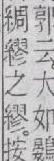 郭云大如鷃
綢繆之繆。按